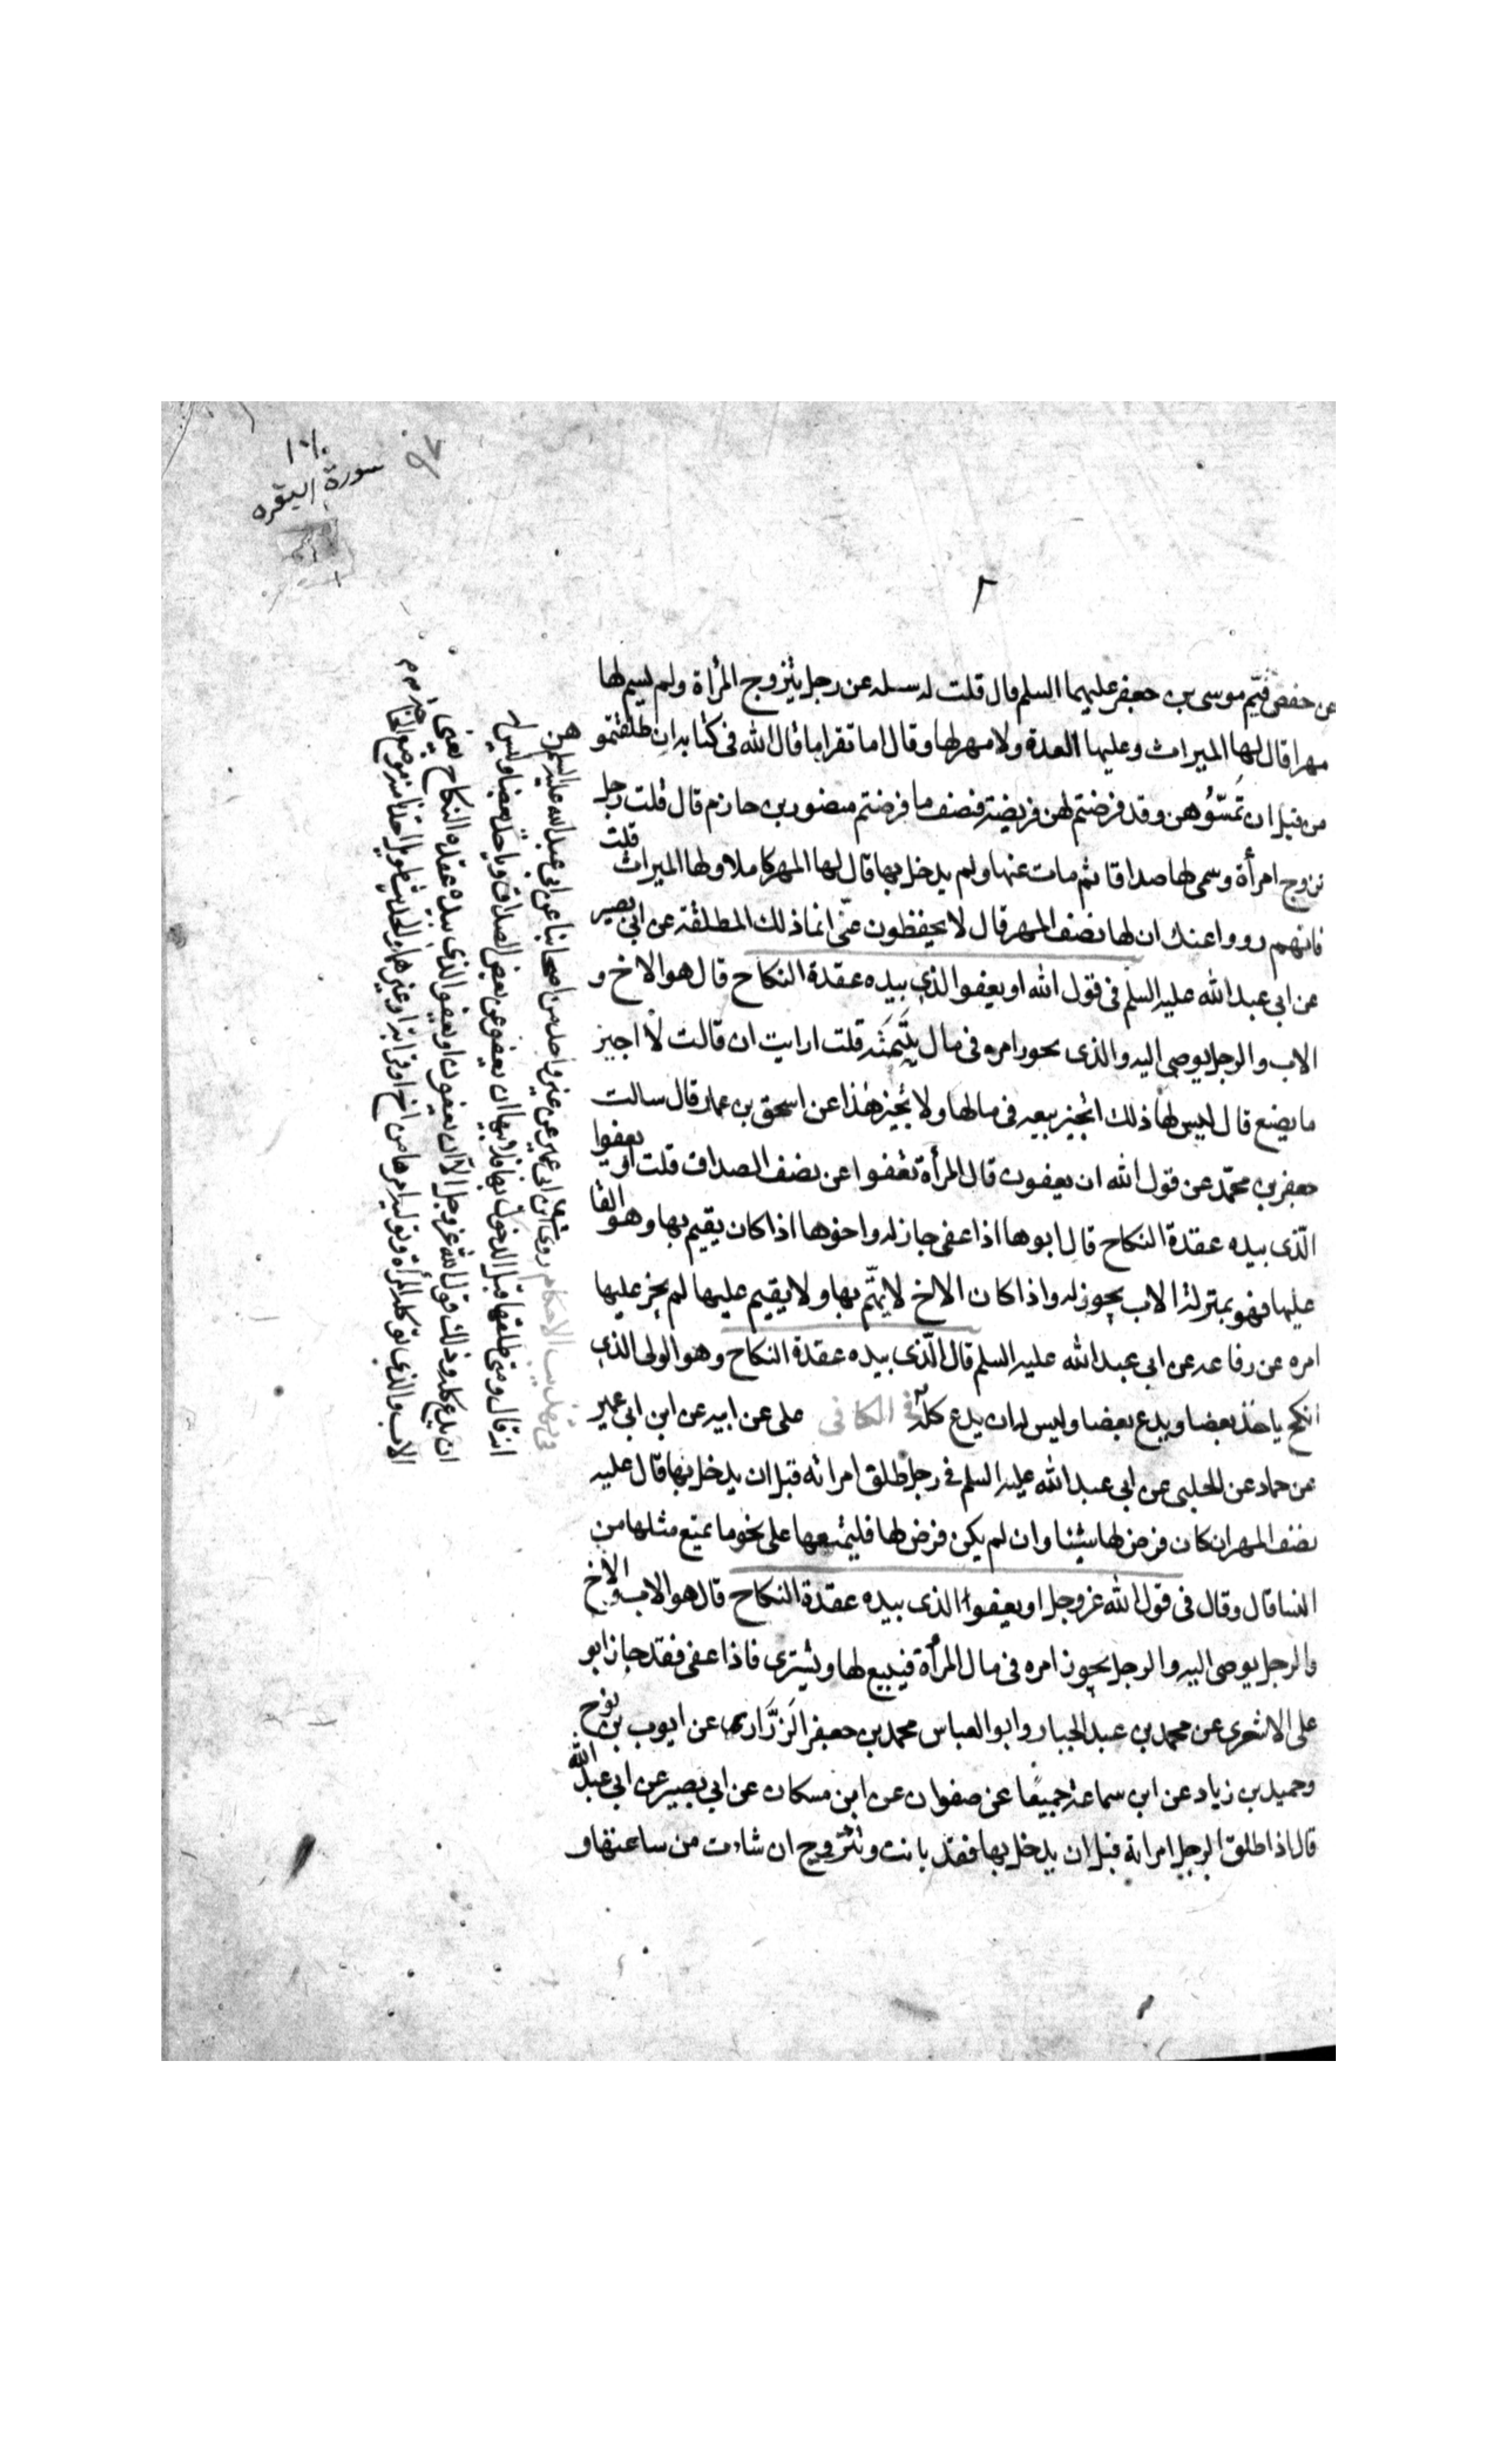 ٩٧
١٠٨
سورة البقرة
٢
عن حفص قيم موسى بن جعفر عليهما السلم قال قلت له سله عن رجل يتزوج المرأة ولم يسم لها
مهرا قال لها الميراث وعليها العدة ولا مهر لها وقال اما تقرا ما قال الله فى كتابه ان طلقتموهن
من قبل ان تمسوهن وقد فرضتم لهن فريضة فنصف ما فرضتم منصور بن حازم قال قلت رجل
تزوج امرأة وسمى لها صداقا ثم مات عنها ولم يدخل بها قال لها المهر كاملا ولها الميراث قلت
فانهم رووا عنك ان لها نصف المهر قال لا يحفظون عنّى انما ذلك المطلقة عن ابى بصير
عن ابى عبد الله عليه السلم فى قول الله او يعفوا الذى بيده عقدة النكاح قال هو الاخ و
الاب والرجل يوصى اليه والذى يجوز امره فى مال قلت ارايت ان قالت لا اجيز
ما يصنع قال ليس لها ذلك اتجيز بيعه فى مالها ولا تجيز هذا عن اسحق بن عمار قال سالت
جعفر بن محمّد عن قول الله ان يعفون قال المرأة تعفوا عن نصف الصداق قلت او يعفوا
الّذى بيده عقدة النكاح قال ابوها اذا عفى جاز له واخوها اذا كان يقيم بها وهو القا
عليها فهو بمنزلة الاب يجوز له واذا كان الاخ لا يهتّم بها ولا يقيم عليها لم يجز عليها
امره عن رفاعه عن ابى عبد الله عليه السلم قال الّذى بيده عقدة النكاح وهو الولى الذى
انكح ياخذ بعضا ويدع بعضا وليس له ان يدع كلّه فى الكافى على عن ابيه عن ابن ابى عمير
عن حماد عن الحلبى عن ابى عبد الله عليه السلم فى رجل طلق امراته قبل ان يدخل بها قال عليه
نصف المهر ان كان فرض لها شيئا وان لم يكن فرض لها فليمتعها على نحو ما يمتع مثلها من
النسا قال وقال فى قول الله عز وجل او يعفوا الذى بيده عقدة النكاح قال هو الاب والاخ
والرجل يوصى اليه والرجل يجوز امره فى مال المرأة فيبيع لها ويشترى فاذا عفى فقد جاز ابو
على الاشعرى عن محمد بن عبد الجبار وابو العباس محمد بن جعفر الرَزّارى عن ايوب بن نوح
وحميد بن زياد عن ابن سماعة جميعًا عن صفوان عن ابن مسكان عن ابى بصير عن ابى عبد الله
قال اذا طلق الرجل امراته قبل ان يدخل بها فقد بانت وتتزوج ان شاءت من ساعتها و
فى تهذيب الاحكام روى ابن ابى عمير عن غير واحد من اصحابنا عن ابى عبد الله عليه السلم
انه قال ومتى طلقها قبل الدخول بها فلابيها ان يعفو عن بعض الصداق وياخذ بعضا وليس له
ان يدع كله وذلك قول الله عز وجل الا ان يعفون او يعفو الذى بيده عقدة النكاح يعنى
الاب والذى توكله المرأة وتوليه امرها من اخ او قرابة او غيرهما والحديث طويل اخذنا منه موضع الحاجة